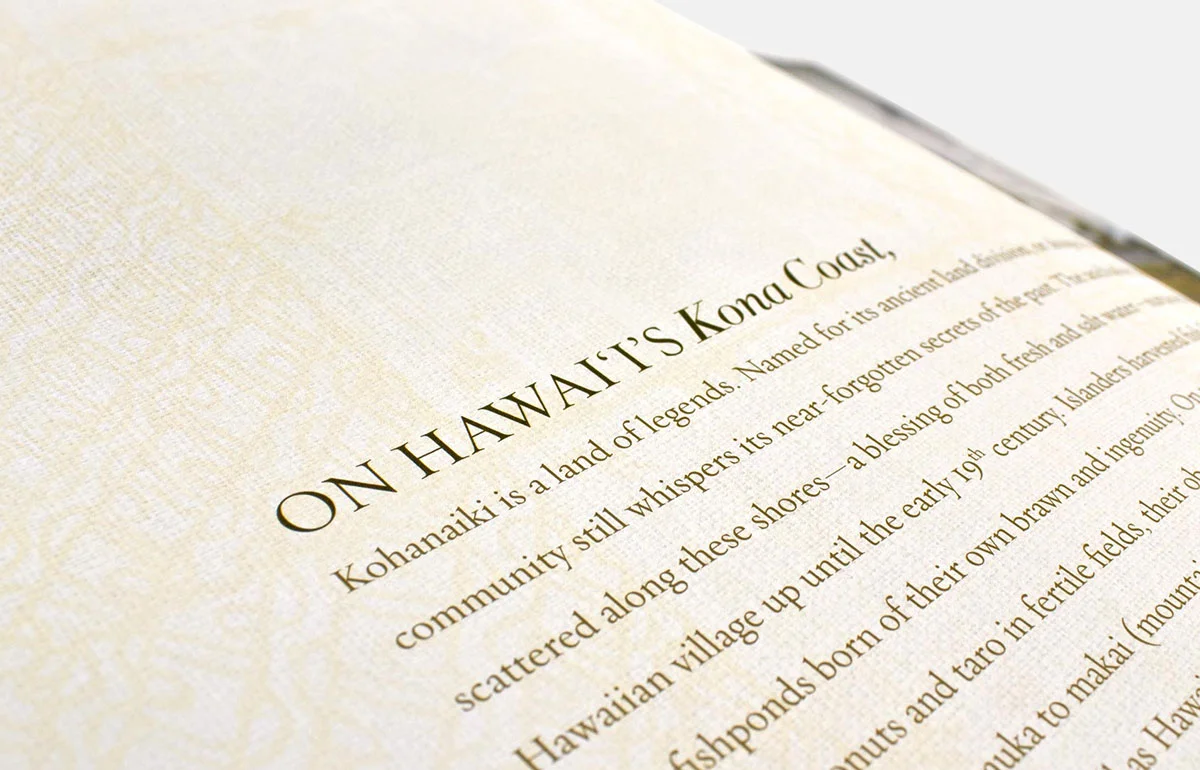 ON HAWAI‘I’S Kona Coast,
Kohanaiki is a land of legends. Named for its ancient land division, or
community still whispers its near-forgotten secrets of the past. The
scattered along these shores—a blessing of both fresh and salt water—
Hawaiian village up until the early 19th century. Islanders harvested
fishponds born of their own brawn and ingenuity. On
onuts and taro in fertile fields, their
auka to makai (mounta
as Haw